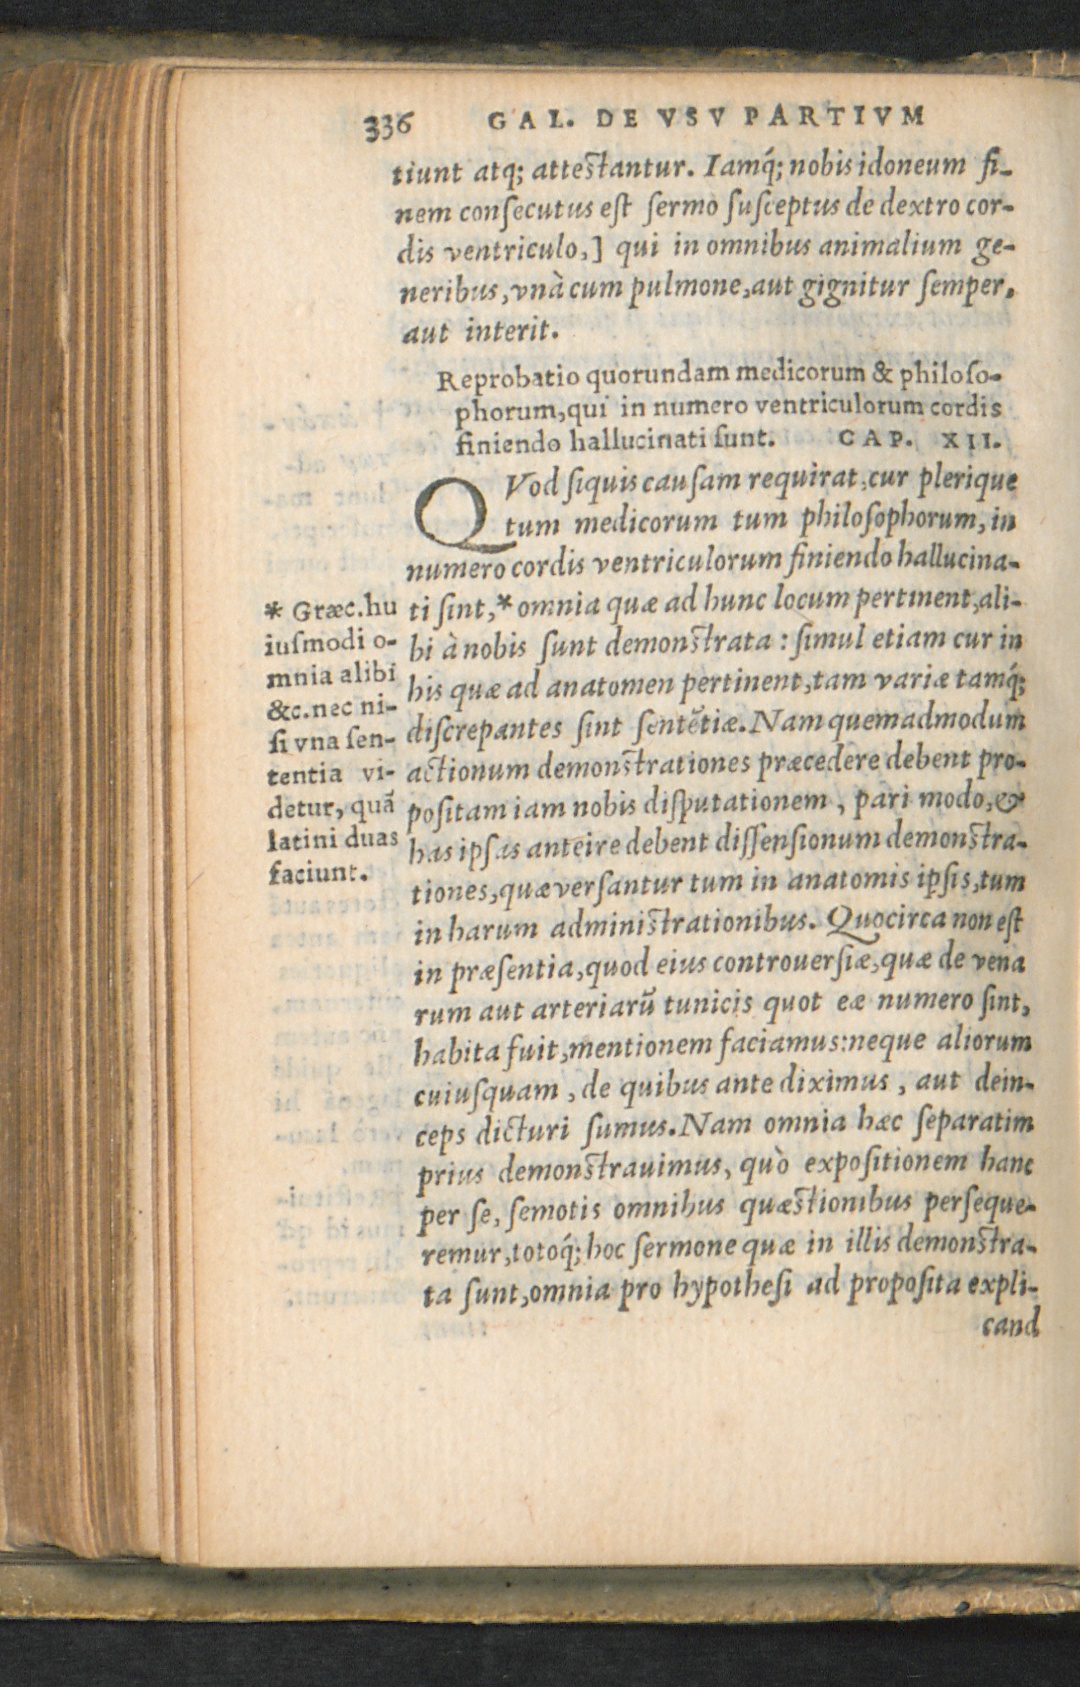 336 GAL. DE VSV PARTIVM
tiunt atq; attestantur. Iamq́; nobis idoneum fi-
nem consecutus eſt ſermo ſuſceptus de dextro cor-
dis ventriculo,] qui in omnibus animalium ge-
neribus, vnà cum pulmone, aut gignitur ſemper,
aut interit.
Reprobatio quorundam medicorum & philoſo-
phorum, qui in numero ventriculorum cordis
finiendo hallucinati ſunt. CAP. XII.
QVod ſiquis cauſam requirat, cur plerique
tum medicorum tum philoſophorum, in
numero cordis ventriculorum finiendo hallucina-
ti ſint,* omnia quæ ad hunc locum pertinent, ali-
bi à nobis ſunt demonſtrata : ſimul etiam cur in
his quæ ad anatomen pertinent, tam variæ tamq́;
diſcrepantes ſint ſentẽtiæ. Nam quemadmodum
actionum demonſtrationes præcedere debent pro-
poſitam iam nobis diſputationem , pari modo, &
has ipſas anteire debent diſſenſionum demonſtra-
tiones, quæ verſantur tum in anatomis ipſis, tum
in harum adminiſtrationibus. Quocirca non eſt
in præſentia, quod eius controuerſiæ, quæ de vena
rum aut arteriarũ tunicis quot eæ numero ſint,
habita fuit, mentionem faciamus: neque aliorum
cuiuſquam , de quibus ante diximus , aut dein-
ceps dicturi ſumus. Nam omnia hæc ſeparatim
prius demonſtrauimus, quò expoſitionem hanc
per ſe, ſemotis omnibus quæſtionibus perſeque-
remur, totoq́; hoc ſermone quæ in illis demonſtra-
ta ſunt, omnia pro hypotheſi ad propoſita expli-
cand
* Græc. hu
iuſmodi o-
mnia alibi
&c. nec ni-
ſi vna ſen-
tentia vi-
detur, quã
latini duas
faciunt.